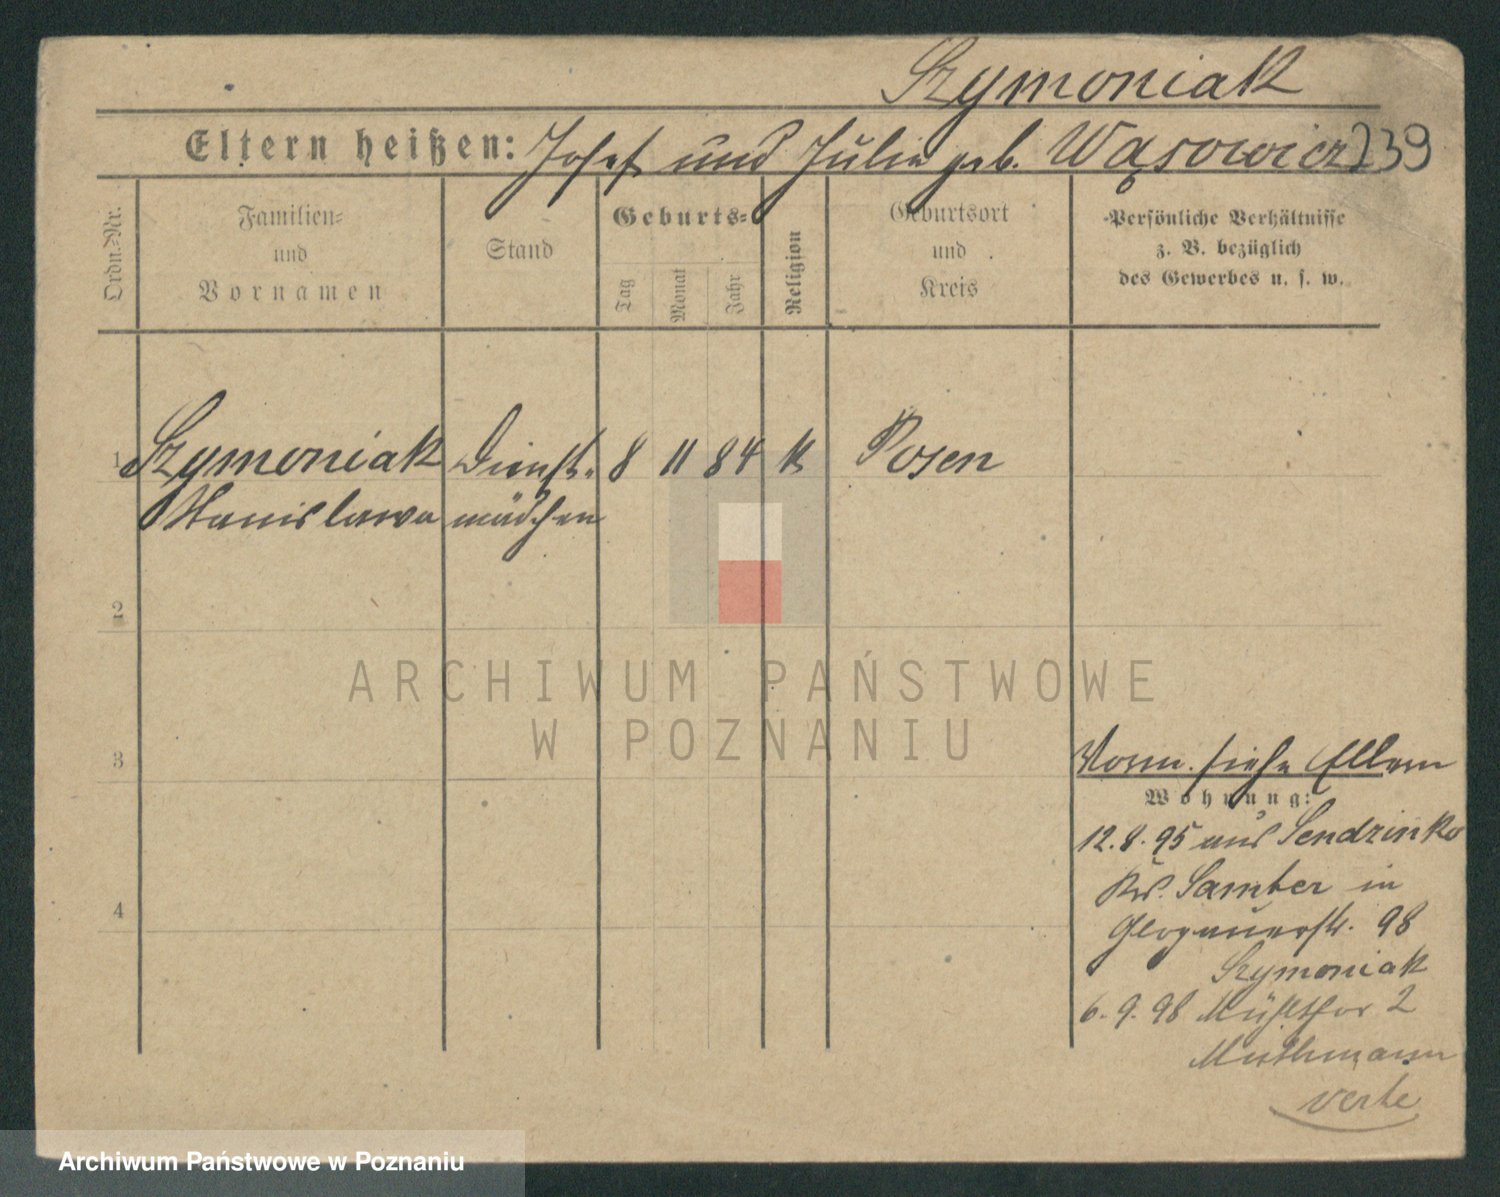 Szymoniak
Eltern heißen: Josef und Julie geb. Wąsowicz 239
Ordn.-Nr.
Familien-
und
Vornamen
Stand
Geburts-
Tag
Monat
Jahr
Religion
Geburtsort
und
Kreis
Persönliche Verhältnisse
z. B. bezüglich
des Gewerbes u. s. w.
1 Szymoniak Dienst- 8 11 84 k Posen
Stanislawa mädchen
2
3
4
ARCHIWUM PAŃSTWOWE
W POZNANIU
Vorm. siehe Eltern
Wohnung:
12.8.95 aus Sendzinko
Krs. Samter in
Glogauerstr. 98
Szymoniak
6.9.98 Mühlthor 2
Muthmann
verte
Archiwum Państwowe w Poznaniu